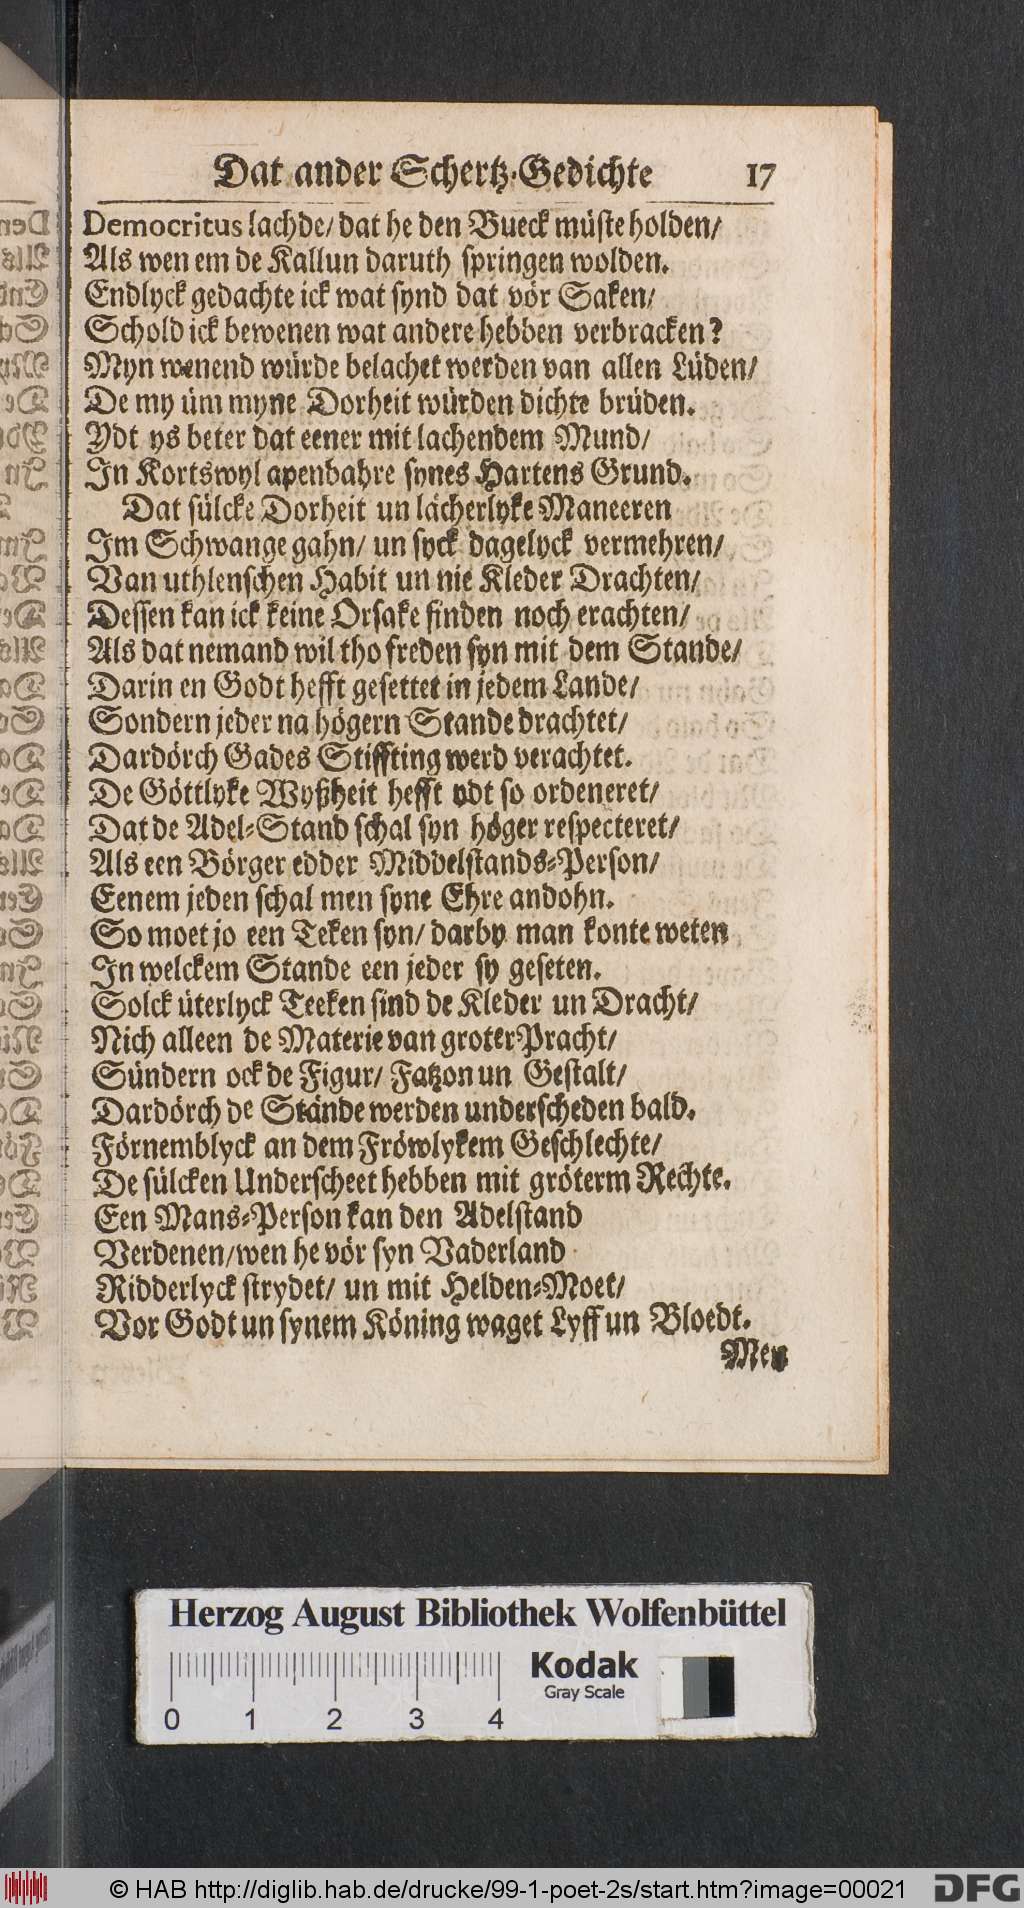 Dat ander Schertz-Gedichte 17
Democritus lachde/ dat he den Bueck müste holden/
Als wen em de Kallun daruth springen wolden.
Endlyck gedachte ick wat synd dat vör Saken/
Schold ick bewenen wat andere hebben verbracken?
Myn wenend würde belachet werden van allen Lüden/
De my üm myne Dorheit würden dichte brüden.
Ydt ys beter dat eener mit lachendem Mund/
In Kortswyl apenbahre synes Hartens Grund.
Dat sülcke Dorheit un lächerlyke Maneeren
Im Schwange gahn/ un syck dagelyck vermehren/
Van uthlenschen Habit un nie Kleder Drachten/
Dessen kan ick keine Orsake finden noch erachten/
Als dat nemand wil tho freden syn mit dem Stande/
Darin en Godt hefft gesettet in jedem Lande/
Sondern jeder na högern Stande drachtet/
Dardörch Gades Stiffting werd verachtet.
De Göttlyke Wyßheit hefft ydt so ordeneret/
Dat de Adel-Stand schal syn höger respecteret/
Als een Börger edder Middelstands-Person/
Eenem jeden schal men syne Ehre andohn.
So moet jo een Teken syn/ darby man konte weten
In welckem Stande een jeder sy geseten.
Solck üterlyck Teeken sind de Kleder un Dracht/
Nich alleen de Materie van groter Pracht/
Sündern ock de Figur/ Fatzon un Gestalt/
Dardörch de Stände werden underscheden bald.
Förnemblyck an dem Fröwlykem Geschlechte/
De sülcken Underscheet hebben mit gröterm Rechte.
Een Mans-Person kan den Adelstand
Verdenen/ wen he vör syn Vaderland
Ridderlyck strydet/ un mit Helden-Moet/
Vor Godt un synem Köning waget Lyff un Bloedt.
Men
Herzog August Bibliothek Wolfenbüttel
Kodak
Gray Scale
0 1 2 3 4
© HAB http://diglib.hab.de/drucke/99-1-poet-2s/start.htm?image=00021
DFG